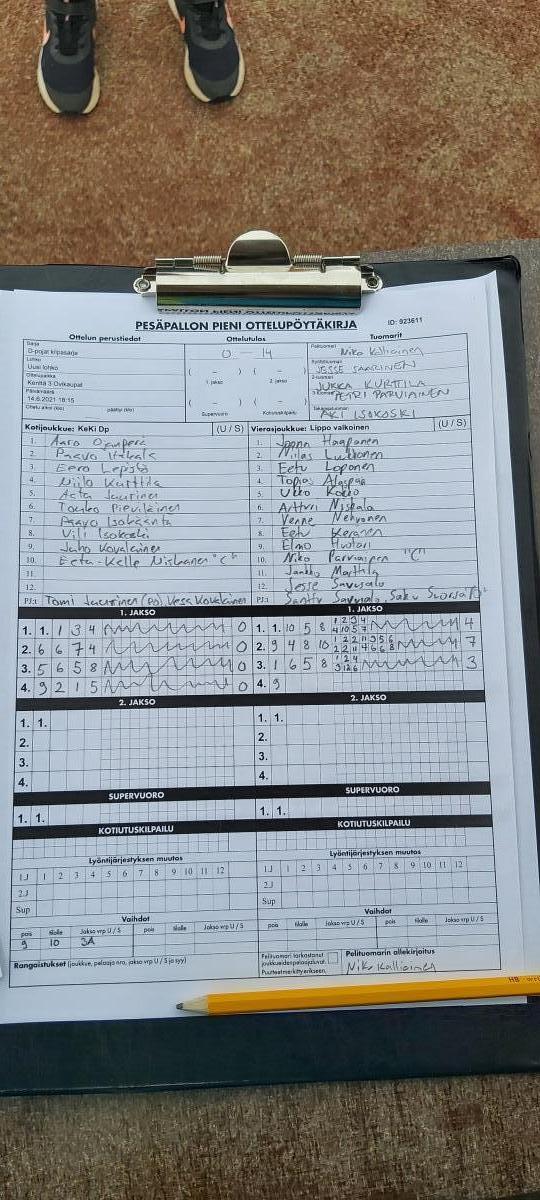 PESÄPALLON PIENI OTTELUPÖYTÄKIRJA ID: 923611
Ottelun perustiedot Ottelutulos Tuomarit
Sarja
D-pojat kilpasarja
Lohko
Uusi lohko
Ottelupaikka
Kenttä 3 Ovikaupat
Päivämäärä
14.6.2021 18:15
Ottelu alkoi (klo) päättyi (klo)
0 - 14
( - ) ( - )
1. jakso 2. jakso
( - ) ( - )
Supervuoro Kotiutuskilpailu
Pelituomari Niko Kallioinen
Syöttötuomari JESSE SAARINEN
2-tuomari JUKKA KURTTILA
3-tuomari PETRI PARVIAINEN
Takatuomari AKI ISOKOSKI
Kotijoukkue: KeKi Dp (U / S) Vierasjoukkue: Lippo valkoinen (U / S)
1. Aaro Ojanperä
2. Paavo
3. Eero Lepistö
4. Niilo Kurttila
5. Aatu Laurinen
6. Touko Pieviläinen
7. Paavo Isokääntä
8. Vili Isokoski
9. Juho Kovalainen
10. Eetu-Kalle Niskanen "C"
11.
12.
PJ:t Tomi Laurinen (PJ) Vesa Kovalainen
1. Joona Haapanen
2. Niilas Lukkonen
3. Eetu Loponen
4. Topias Alaspää
5. Ukko Kokko
6. Artturi Niskala
7. Venne Nehvonen
8. Eetu Keränen
9. Elmo Huotari
10. Niko Parviainen "C"
11. Jaakko Marttila
12. Jesse Savusalo
PJ:t Santtu Savusalo, Saku
1. JAKSO 1. JAKSO
1. 1. 1 3 4 0
2. 6 6 7 4 0
3. 5 6 5 8 0
4. 9 2 1 5 0
1. 1. 10 5 8 1 2 3 4 4
4 10 5 7
2. 9 4 8 10 1 2 2 11 3 5 6 7
2 2 11 4 6 6 8
3. 1 6 5 8 1 2 4 3
3 12 6
4. 9
2. JAKSO 2. JAKSO
1. 1. 1. 1.
2. 2.
3. 3.
4. 4.
SUPERVUORO SUPERVUORO
1. 1. 1. 1.
KOTIUTUSKILPAILU KOTIUTUSKILPAILU
Lyöntijärjestyksen muutos Lyöntijärjestyksen muutos
1.J 1 2 3 4 5 6 7 8 9 10 11 12 1.J 1 2 3 4 5 6 7 8 9 10 11 12
2.J 2.J
Sup Sup
Vaihdot Vaihdot
pois tilalle Jakso vrp U / S pois tilalle Jakso vrp U / S pois tilalle Jakso vrp U / S pois tilalle Jakso vrp U / S
9 10 3A
Rangaistukset (joukkue, pelaaja nro, jakso vrp U / S ja syy)
Pelituomari tarkastanut
joukkueiden pelaajaluvat.
Puutteet merkitty erikseen.
Pelituomarin allekirjoitus
Niko Kallioinen
HB